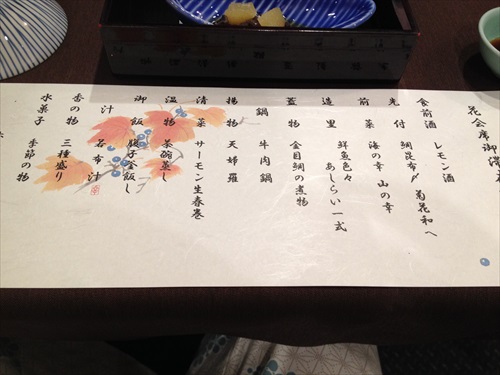 花会席御
食前酒 レモン酒
先付 鯛昆布〆 菊花和へ
前菜 海の幸 山の幸
造里 鮮魚色々
あしらい一式
蓋物 金目鯛の煮物
鍋 牛肉鍋
揚物 天婦羅
清菜 サーモン生春巻
温物 茶碗蒸し
御飯 釜飯し
汁 若布汁
香の物 三種盛り
水菓子 季節の物